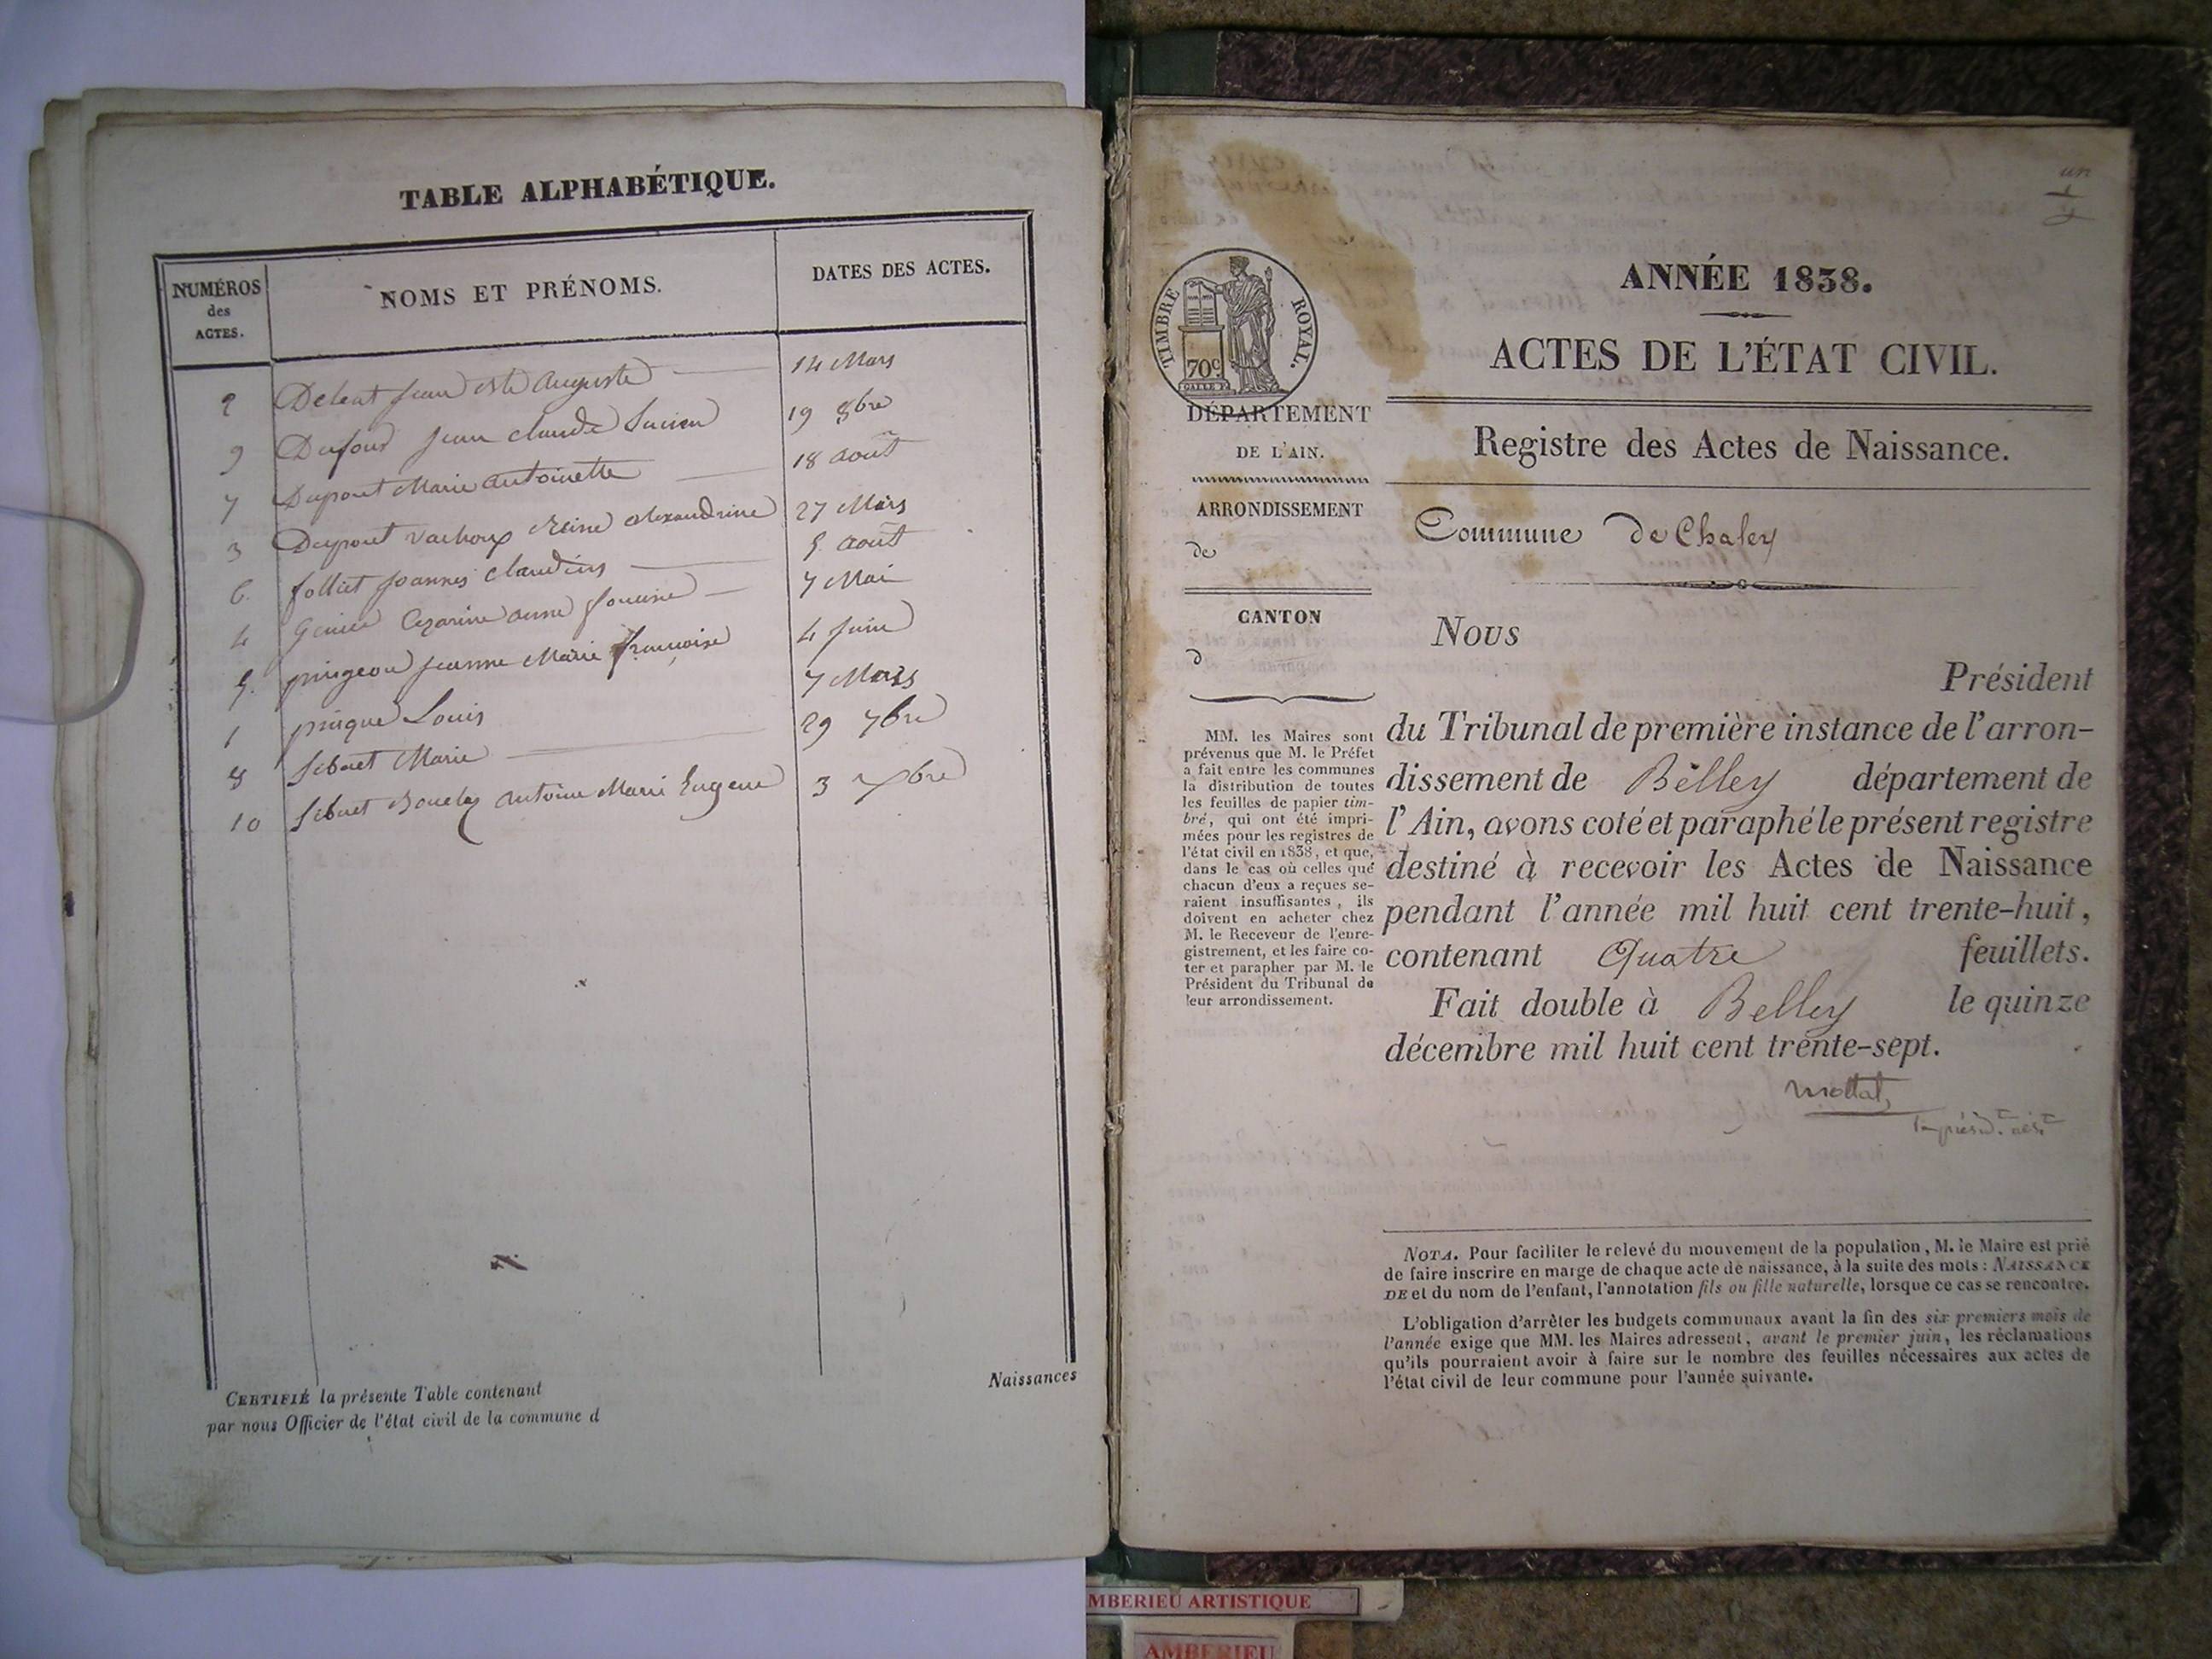 TABLE ALPHABÉTIQUE.
NUMÉROS
des
ACTES.
NOMS ET PRÉNOMS.
DATES DES ACTES.
2 Jean Auguste 14 Mars
9 Dufour Jean Claude Lucien 19 8bre
7 Dupont Marie Antoinette 18 août
3 Dupont Vachoux Reine Alexandrine 27 Mars
6. folliet Joannes Claudius 5 août
4 Cezarine anne 7 Mai
5. pingeon Jeanne Marie françoise 4 Juin
1 pingue Louis 7 Mars
8 Sibuet Marie 29 7bre
10 Sibuet Antoine Marie Eugene 3 Xbre
Naissances
CERTIFIÉ la présente Table contenant
par nous Officier de l'état civil de la commune d
un
TIMBRE ROYAL.
70c
DÉPARTEMENT
DE L'AIN.
ARRONDISSEMENT
de
CANTON
d
MM. les Maires sont
prévenus que M. le Préfet
a fait entre les communes
la distribution de toutes
les feuilles de papier tim-
bré, qui ont été impri-
mées pour les registres de
l'état civil en 1838, et que,
dans le cas où celles que
chacun d'eux a reçues se-
raient insuffisantes, ils
doivent en acheter chez
M. le Receveur de l'enre-
gistrement, et les faire co-
ter et parapher par M. le
Président du Tribunal de
leur arrondissement.
ANNÉE 1838.
ACTES DE L'ÉTAT CIVIL.
Registre des Actes de Naissance.
Commune de Chaley
Nous
Président
du Tribunal de première instance de l'arron-
dissement de Belley département de
l'Ain, avons coté et paraphé le présent registre
destiné à recevoir les Actes de Naissance
pendant l'année mil huit cent trente-huit,
contenant Quatre feuillets.
Fait double à Belley le quinze
décembre mil huit cent trente-sept.
NOTA. Pour faciliter le relevé du mouvement de la population, M. le Maire est prié
de faire inscrire en marge de chaque acte de naissance, à la suite des mots : NAISSANCE
DE et du nom de l'enfant, l'annotation fils ou fille naturelle, lorsque ce cas se rencontre.
L'obligation d'arrêter les budgets communaux avant la fin des six premiers mois de
l'année exige que MM. les Maires adressent, avant le premier juin, les réclamations
qu'ils pourraient avoir à faire sur le nombre des feuilles nécessaires aux actes de
l'état civil de leur commune pour l'année suivante.
MBERIEU ARTISTIQUE
AMBERIEU